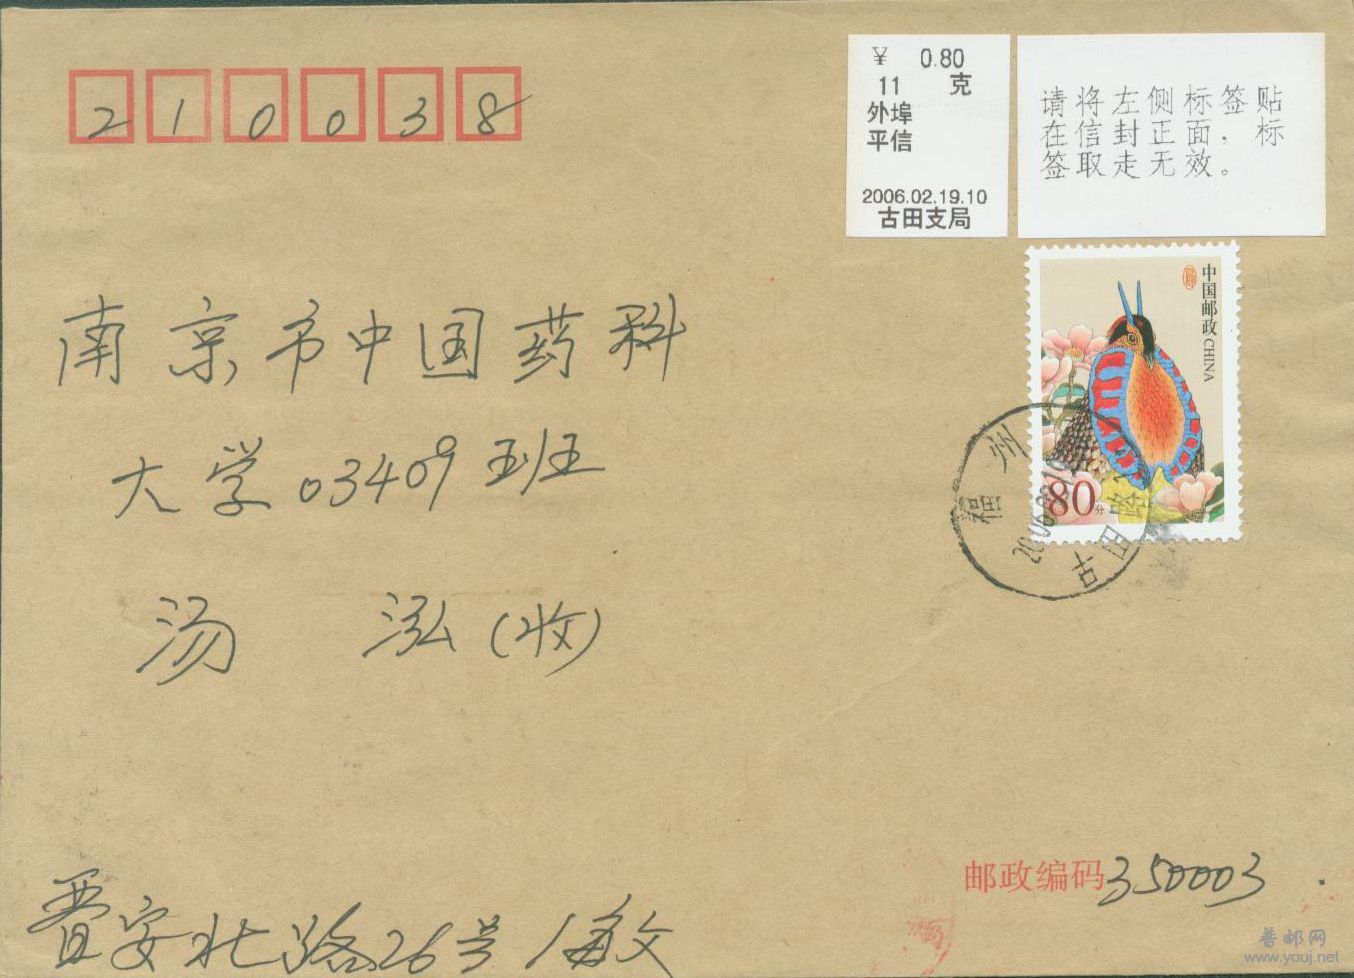 210038
¥ 0.80
11 克
外埠
平信
2006.02.19.10
古田支局
请将左侧标签贴
在信封正面，标
签取走无效。
中国邮政 CHINA
80分
福州
古田路
南京市中国药科
大学03409班
汤泓(收)
邮政编码350003
晋安北路26号
普邮网
www.youj.net